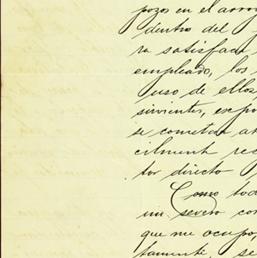 pozos en el arro
dentro del
ra satisfada
empleado, los
uso de ellos
sirvientes, es po
se cometida at
cilment rec
tor directo
Como tod
un severo con
que me ocupo
tamente, se